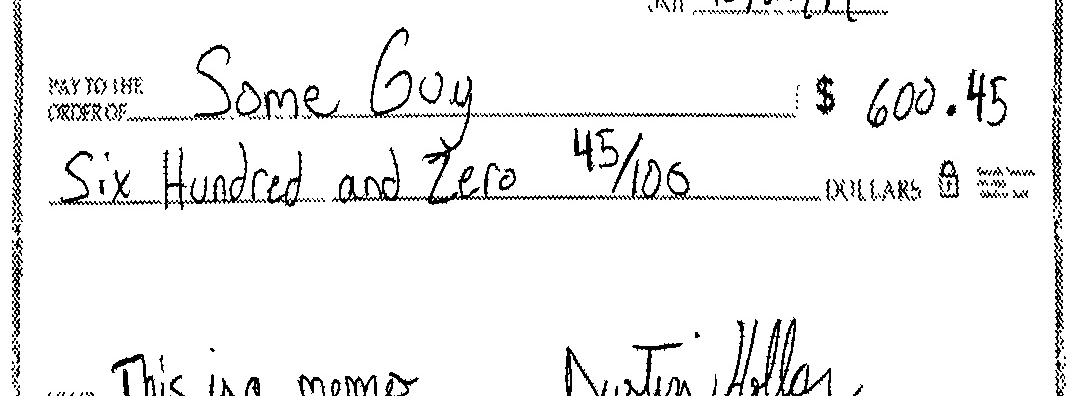 PAY TO THE
ORDER OF Some Guy $ 600.45
Six Hundred and Zero 45/100 DOLLARS
This is a memo